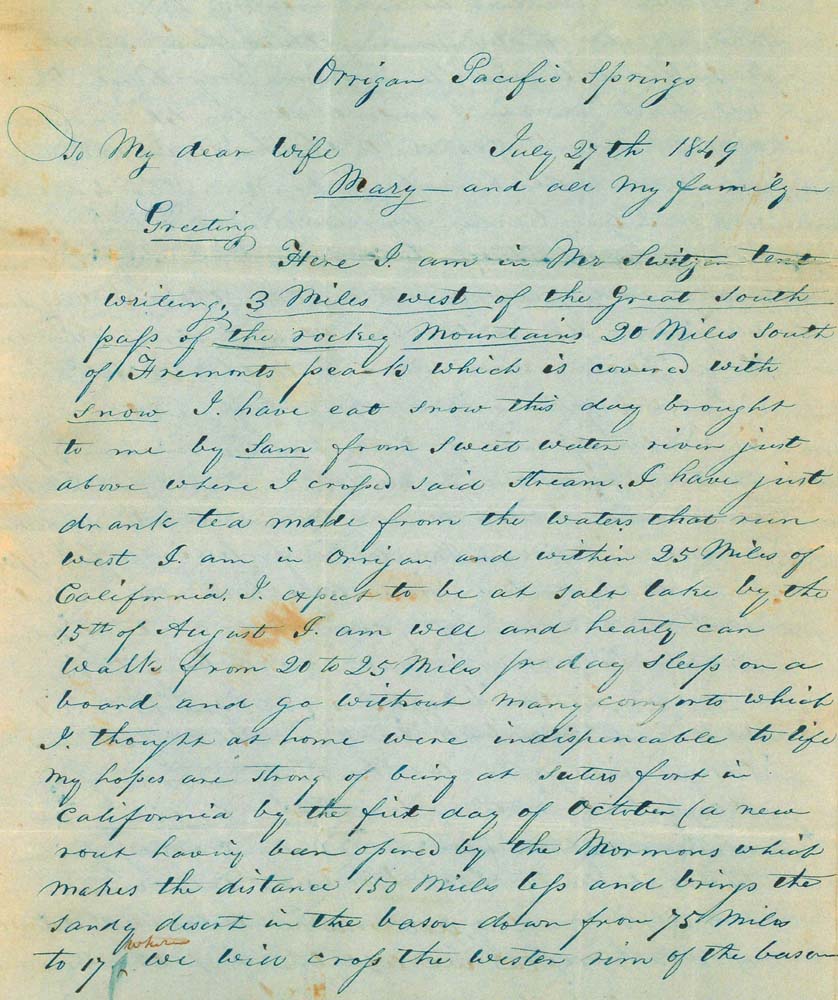 Orrigan Pacific Springs
To My dear Wife July 27th 1849
Mary — and all my family —
Greeting
Here I. am in Mr Switzer tent
writing, 3 Miles west of the Great South
pass of the rockey Mountains 20 Miles South
of Fremonts peak which is covered with
snow I. have eat snow this day brought
to me by Sam from sweet water river just
above where I crossed said stream. I have just
drank tea made from the waters that run
west I. am in Orrigan and within 25 Miles of
California. I. expect to be at salt lake by the
15th of August I. am well and hearty can
walk from 20 to 25 Miles pr day sleep on a
board and go without many comforts which
I. thought at home were indispencable to life
my hopes are strong of being at suters fort in
California by the first day of October (a new
rout having been opened by the Mormons which
makes the distance 150 Miles less and brings the
sandy desert in the bason down from 75 Miles
to 17, where we will cross the wester rim of the bason